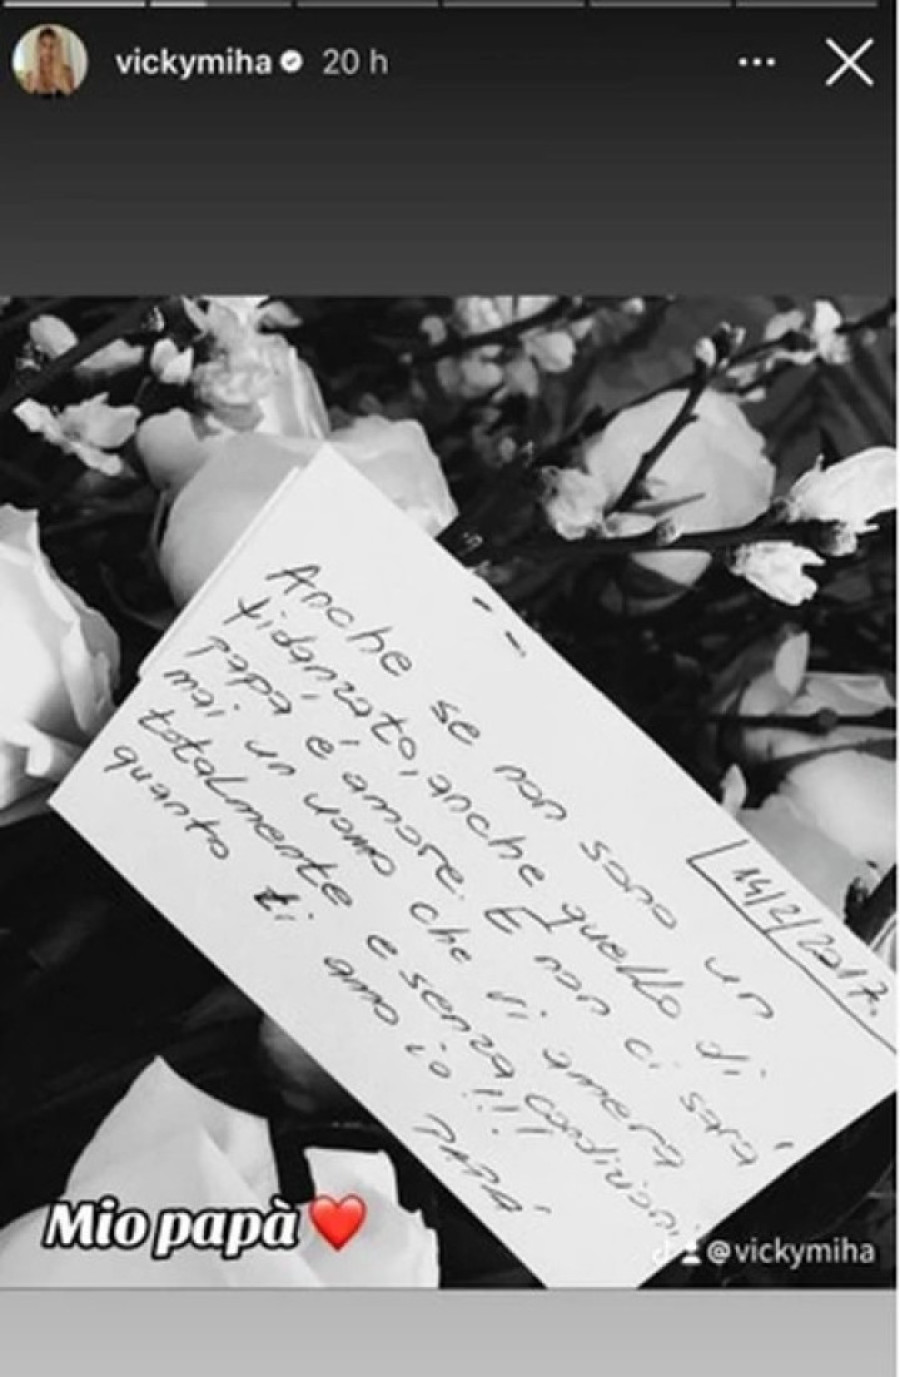 vickymiha 20 h
14/2/2017.
Anche se non sono un
fidanzato, anche quello di
papá é amore. E non ci sará
mai un uomo che ti amerá
totalmente e senza condizioni
quanto ti amo io!!!
PAPÁ
Mio papà
@vickymiha